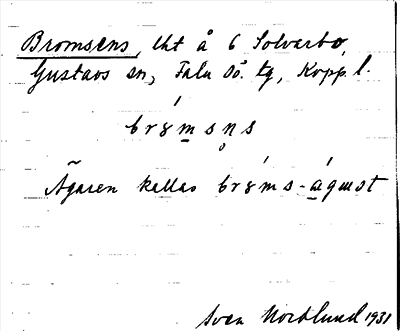 Bromsens, lht å 6 Solvarbo,
Gustavs sn, Falu Sö. tg, Kopp. l.
br8́msn̥s
Ägaren kallas br8́ms-águst
Sven Norrlund 1931